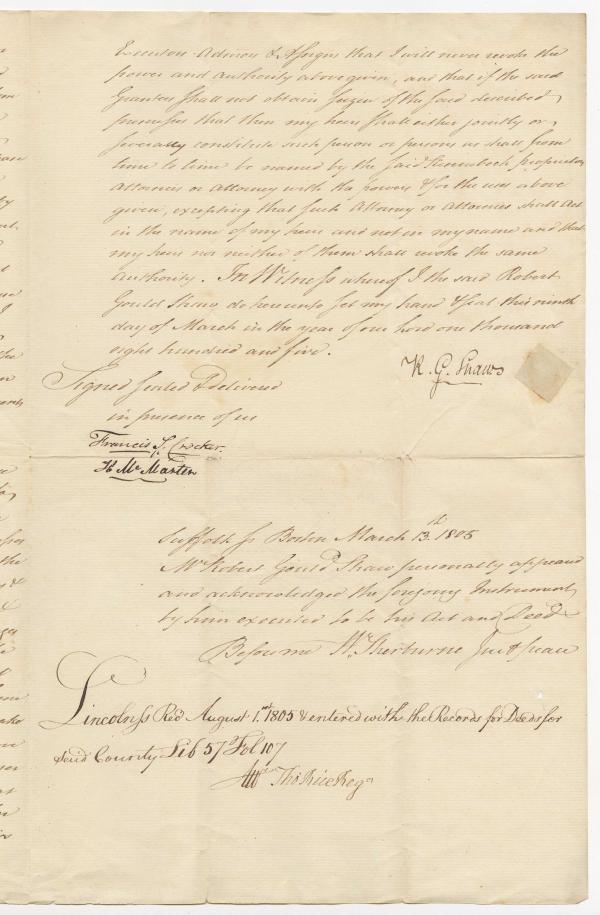 Executors Admors & Assigns that I will never revoke the
power and authority above given, and that if the said
Grantees shall not obtain seizen of the said described
premises that then my heirs shall either jointly or
severally constitute such person or persons as shall from
time to time be named by the said Kennebeck proprietors
Attornies or Attorney with the powers & for the uses above
given, excepting that such Attorney or Attornies shall Act
in the name of my heirs and not in my name and that
my heirs nor neither of them shall revoke the same
Authority. In Witness whereof I the said Robert
Gould Shaw do hereunto set my hand & seal this ninth
day of March in the year of our Lord one thousand
eight hundred and five.
R. G. Shaw
Signed sealed & delivered
in presence of us
Francis S. Crocker.
Mc Marten
Suffolk ss Boston March 13th 1805
Mr Robert Gould Shaw personally appeared
and acknowledged the foregoing Instrument
by him executed to be his Act and Deed
Before me Wm Sherburne Just peace
Lincoln ss Recd August 1st 1805 & entered with the Records for Deeds for
said County Lib 57 Fol 107
Attr Tho Rice Regr